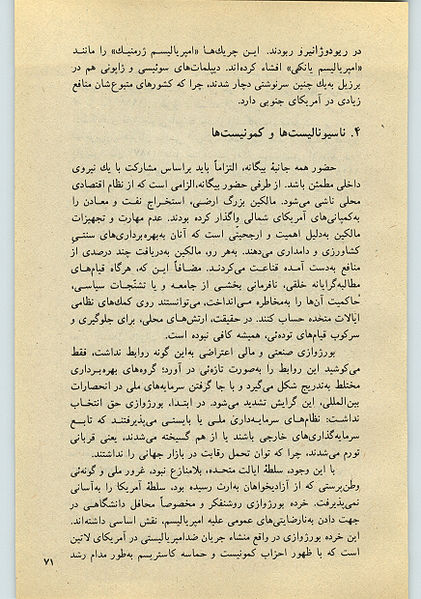 در ریودوژانیرو ربودند. این چریك‌ها «امپریالیسم ژرمنیك» را مانند
«امپریالیسم یانکی» افشاء کرده‌اند. دیپلمات‌های سوئیسی و ژاپونی هم در
برزیل به‌یك چنین سرنوشتی دچار شدند، چرا که کشورهای متبوع‌شان منافع
زیادی در آمریکای جنوبی دارد.
۴. ناسیونالیست‌ها و کمونیست‌ها
حضور همه جانبهٔ بیگانه، التزاماً باید براساس مشارکت با یك نیروی
داخلی مطمئن باشد. از طرفی حضور بیگانه، الزامی است که از نظام اقتصادی
محلی ناشی می‌شود. مالکین بزرگ ارضی، استخراج نفت و معادن را
به‌کمپانی‌های آمریکای شمالی واگذار کرده بودند. عدم مهارت و تجهیزات
مالکین به‌دلیل اهمیت و ارجحیتی است که آنان به‌بهره‌برداری‌های سنتی
کشاورزی و دامداری می‌دهند. به‌هر رو، مالکین به‌دریافت چند درصدی از
منافع به‌دست آمده قناعت می‌کردند. مضافاً این که، هرگاه قیام‌های
مطالبه‌گرایانه خلقی، نافرمانی بخشی از جامعه و یا تشنّجات سیاسی،
حاکمیت آن‌ها را به‌مخاطره می‌انداخت، می‌توانستند روی کمك‌های نظامی
ایالات متحده حساب کنند. در حقیقت، ارتش‌های محلی، برای جلوگیری و
سرکوب قیام‌های توده‌ئی، همیشه کافی نبوده است.
بورژوازی صنعتی و مالی اعتراضی به‌این گونه روابط نداشت، فقط
می‌کوشید این روابط را به‌صورت تازه‌ئی در آورد: گروه‌های بهره‌برداری
مختلط به‌تدریج شکل می‌گیرد و با جا گرفتن سرمایه‌های ملی در انحصارات
بین‌المللی، این گرایش تشدید می‌شود. در ابتدا، بورژوازی حق انتخاب
نداشت: نظام‌های سرمایه‌داری ملی یا بایستی می‌پذیرفتند که تابع
سرمایه‌گذاری‌های خارجی باشند یا از هم گسیخته می‌شدند، یعنی قربانی
تورم می‌شدند، چرا که توان تحمل رقابت در بازار جهانی را نداشتند.
با این وجود، سلطهٔ ایالت متحده، بلامنازع نبود، غرور ملی و گونه‌ئی
وطن‌پرستی که از آزادیخواهان به‌ارث رسیده بود، سلطهٔ آمریکا را به‌آسانی
نمی‌پذیرفت. خرده بورژوازی روشنفکر و مخصوصاً محافل دانشگاهی در
جهت دادن به‌نارضایتی‌های عمومی علیه امپریالیسم، نقش اساسی داشته‌اند.
این خرده بورژوازی در واقع منشاء جریان ضدامپریالیستی در آمریکای لاتین
است که با ظهور احزاب کمونیست و حماسه کاستریسم به‌طور مدام رشد
۷۱